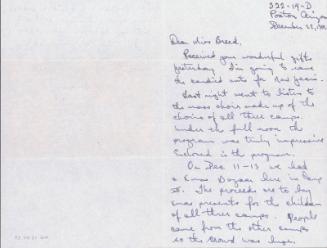 322-14-D
Poston, Arizona
December 22, 
Dear Miss Breed,
Received your wonderful gifts
yesterday. I'm going to save
the candied nuts for New Years.
Last night went to listen to
the mass choir made up of the
choirs of all three camps.
Under the full moon the
program was truly impressive
Enclosed is the program.
On Dec 11-13 we had
a Xmas Bazaar here in Camp
III. The proceeds are to buy
Xmas presents for the children
of all three camps. People
came from the other camps
so the crowd was huge.